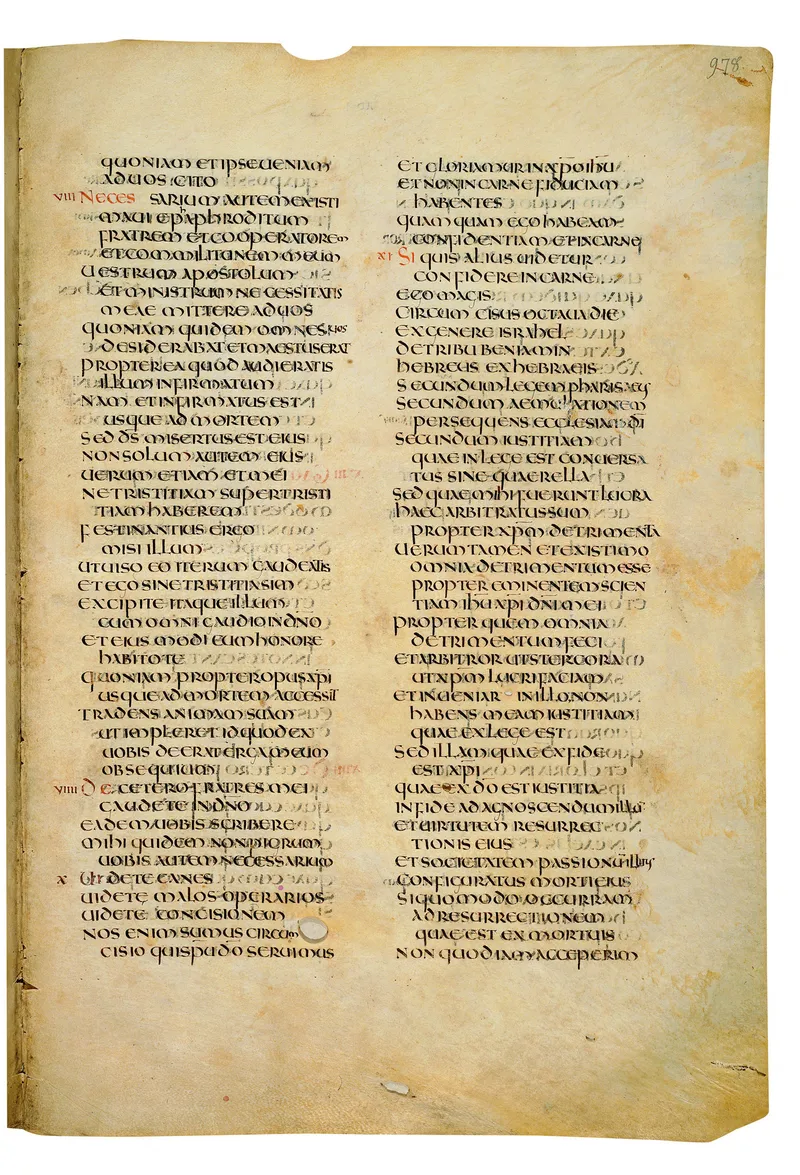 978
QUONIAM ET IPSE UENIAM
AD UOS CITO
VIII NECESSARIUM AUTEM EXISTI
MAUI EPAPHRODITUM
FRATREM ET COOPERATOREM
ET COMMILITANEM MEUM
UESTRUM APOSTOLUM
ET MINISTRUM NECESSITATIS
MEAE MITTERE AD UOS
QUONIAM QUIDEM OMNES UOS
DESIDERABAT ET MAESTUS ERAT
PROPTEREA QUOD AUDIERATIS
ILLUM INFIRMATUM
NAM ET INFIRMATUS EST
USQUE AD MORTEM
SED DS MISERTUS EST EIUS
NON SOLUM AUTEM EIUS
UERUM ETIAM ET MEI
NE TRISTITIAM SUPER TRISTI
TIAM HABEREM
FESTINANTIUS ERGO
MISI ILLUM
UT UISO EO ITERUM GAUDEATIS
ET EGO SINE TRISTITIA SIM
EXCIPITE ITAQUE ILLUM
CUM OMNI GAUDIO IN DNO
ET EIUSMODI CUM HONORE
HABITOTE
QUONIAM PROPTER OPUS XPI
USQUE AD MORTEM ACCESSIT
TRADENS ANIMAM SUAM
UT IMPLERET ID QUOD EX
UOBIS DEERAT ERGA MEUM
OBSEQUIUM
VIIII DE CETERO FRATRES MEI
GAUDETE IN DNO
EADEM UOBIS SCRIBERE
MIHI QUIDEM NON PIGRUM
UOBIS AUTEM NECESSARIUM
X UIDETE CANES
UIDETE MALOS OPERARIOS
UIDETE CONCISIONEM
NOS ENIM SUMUS CIRCUM
CISIO QUI SPU DO SERUIMUS
ET GLORIAMUR IN XPO IHU
ET NON IN CARNE FIDUCIAM
HABENTES
QUAMQUAM EGO HABEAM
CONFIDENTIAM ET IN CARNE
XI SI QUIS ALIUS UIDETUR
CONFIDERE IN CARNE
EGO MAGIS
CIRCUMCISUS OCTAUA DIE
EX GENERE ISRAHEL
DE TRIBU BENIAMIN
HEBREUS EX HEBRAEIS
SECUNDUM LEGEM PHARISAEUS
SECUNDUM AEMULATIONEM
PERSEQUENS ECCLESIAM DI
SECUNDUM IUSTITIAM
QUAE IN LEGE EST CONUERSA
TUS SINE QUAERELLA
SED QUAE MIHI FUERUNT LUCRA
HAEC ARBITRATUS SUM
PROPTER XPM DETRIMENTA
UERUMTAMEN ET EXISTIMO
OMNIA DETRIMENTUM ESSE
PROPTER EMINENTEM SCIEN
TIAM IHU XPI DNI MEI
PROPTER QUEM OMNIA
DETRIMENTUM FECI
ET ARBITROR UT STERCORA
UT XPM LUCRIFACIAM
ET INUENIAR IN ILLO NON
HABENS MEAM IUSTITIAM
QUAE EX LEGE EST
SED ILLAM QUAE EX FIDE
EST XPI
QUAE EX DO EST IUSTITIA
IN FIDE AD AGNOSCENDUM ILLUM
ET UIRTUTEM RESURREC
TIONIS EIUS
ET SOCIETATEM PASSIONUM ILLIUS
CONFIGURATUS MORTI EIUS
SI QUO MODO OCCURRAM
AD RESURRECTIONEM
QUAE EST EX MORTUIS
NON QUOD IAM ACCEPERIM